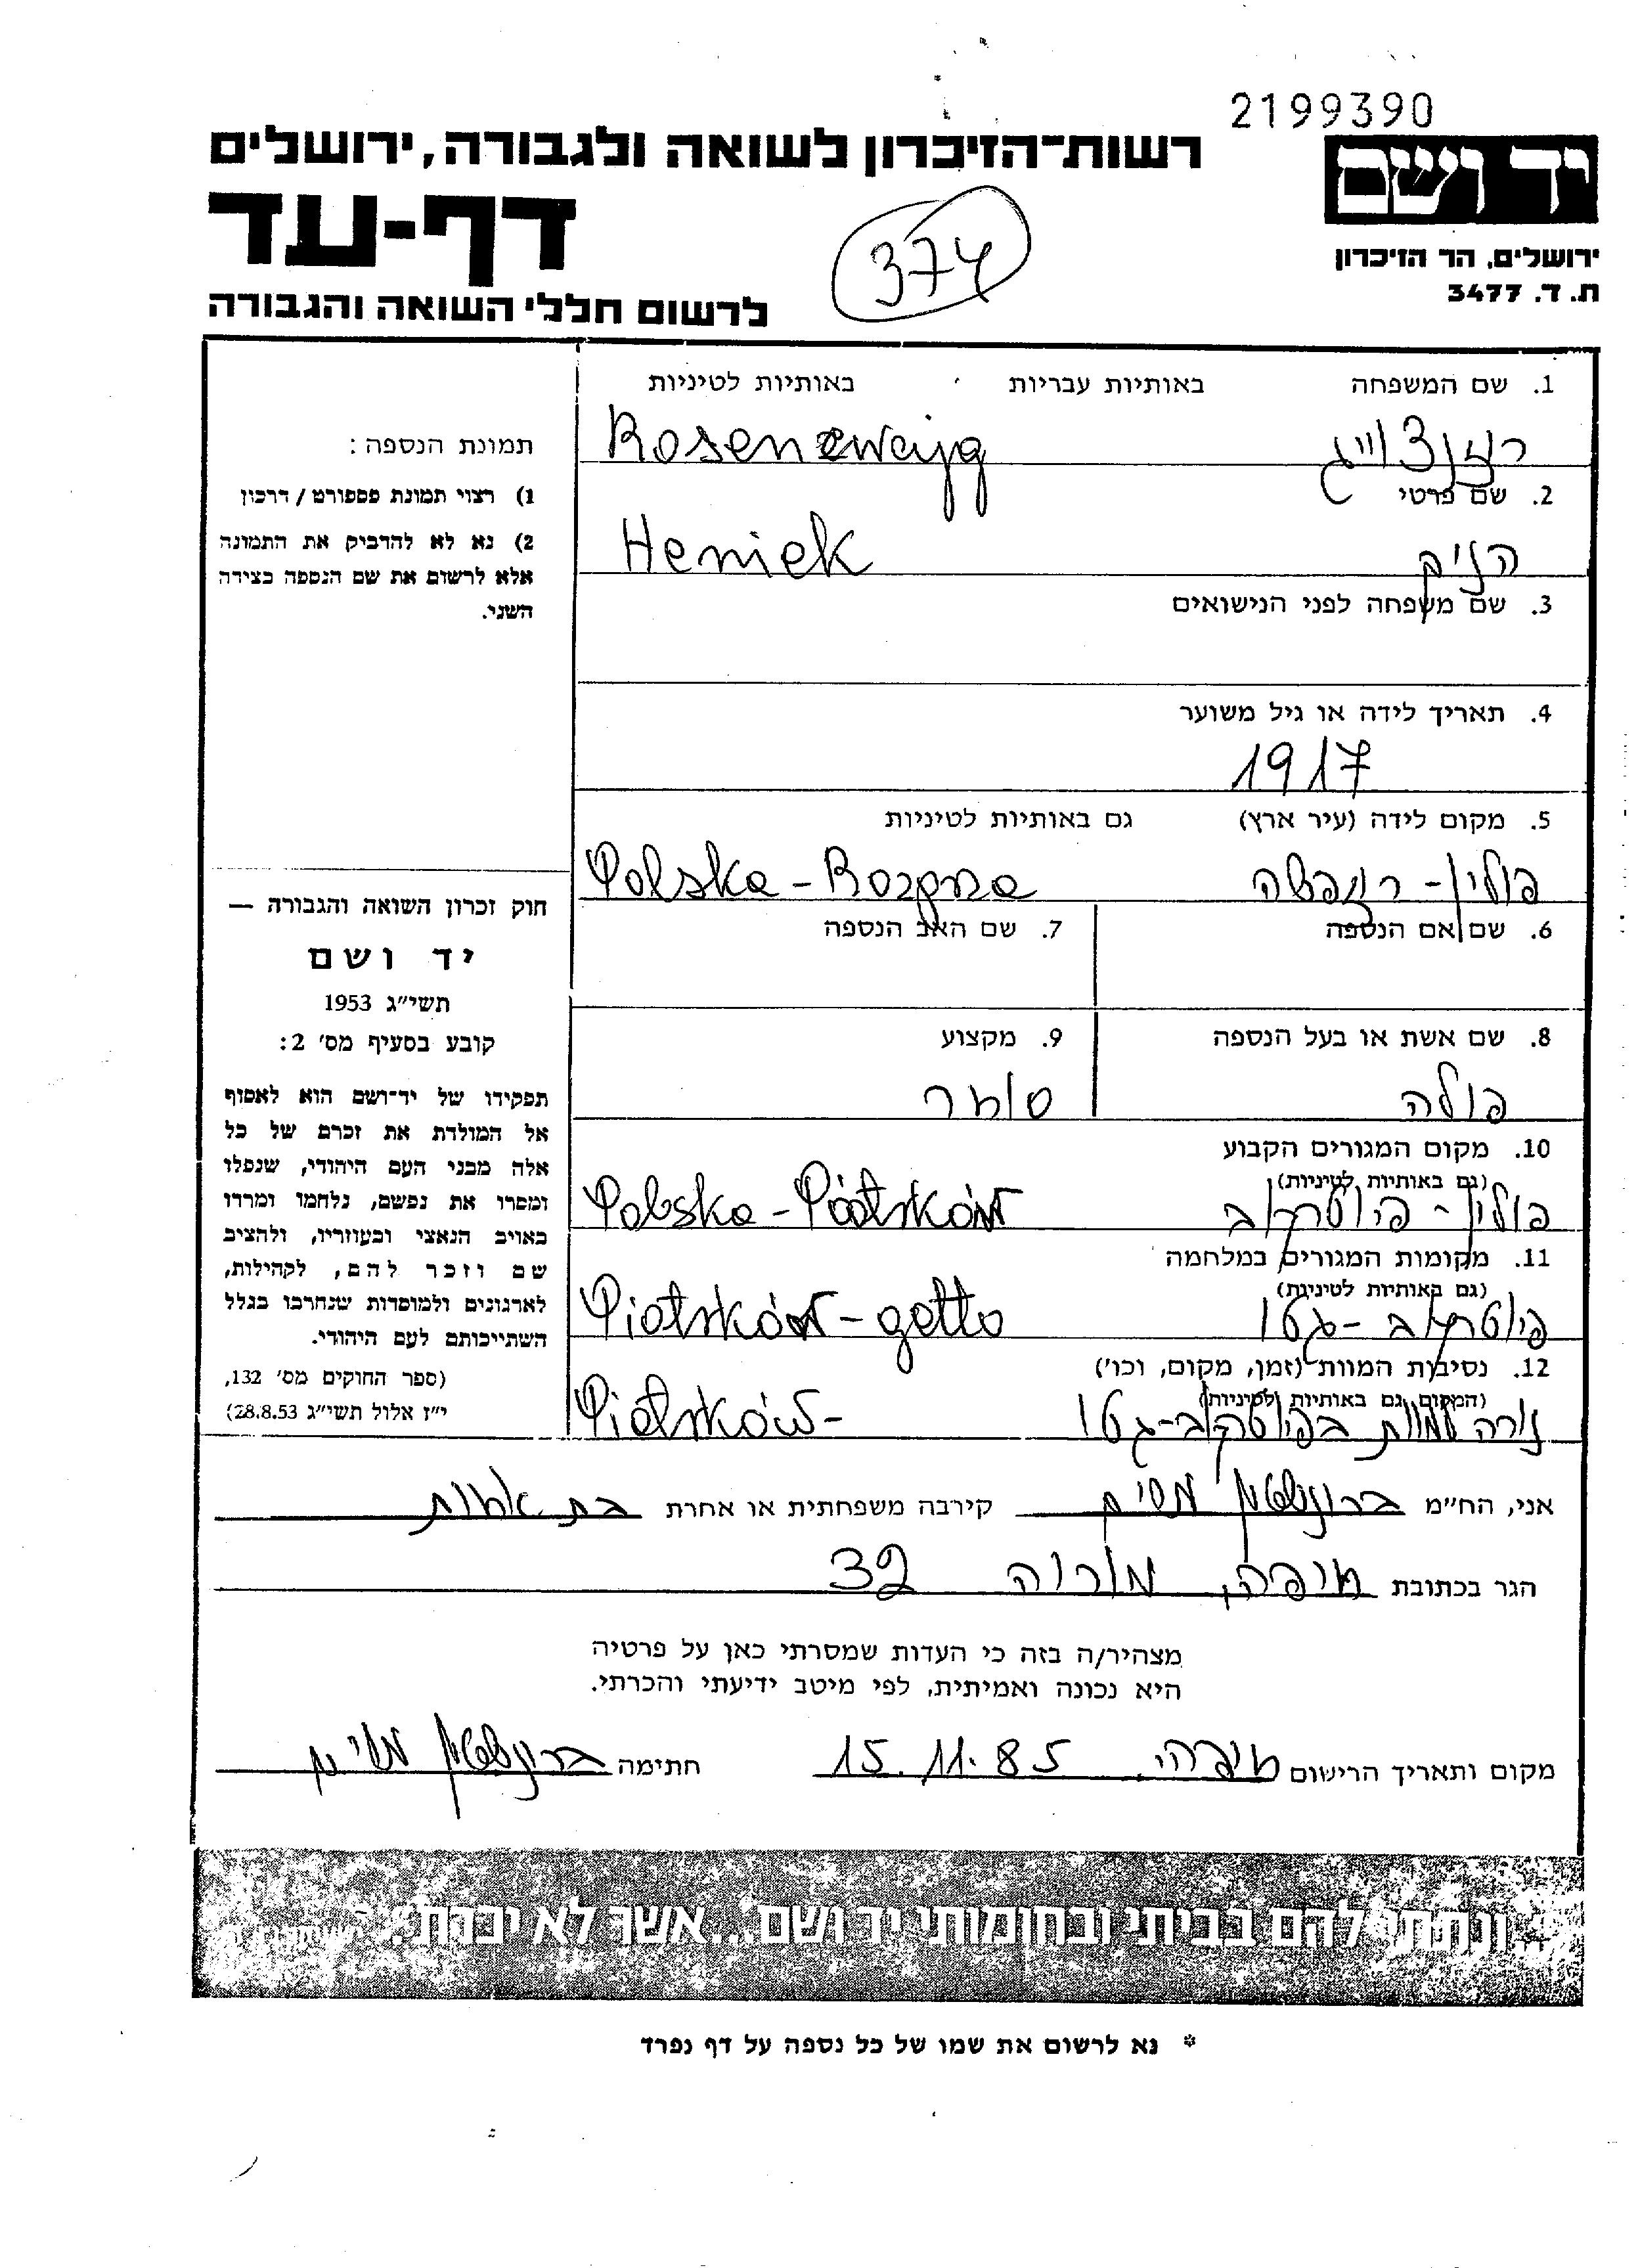 2199390
רשות־הזיכרון לשואה ולגבורה, ירושלים
יד ושם
דף-עד
374
ירושלים, הר הזיכרון
ת. ד. 3477
לרשום חללי השואה והגבורה
1. שם המשפחה באותיות עבריות באותיות לטיניות
רוזנצווייג Rosenzwajg
2. שם פרטי
הניק Heniek
3. שם משפחה לפני הנישואים
4. תאריך לידה או גיל משוער
1917
5. מקום לידה (עיר ארץ) גם באותיות לטיניות
פולין - רוזפשה Polska - Rozprza
6. שם אם הנספה 7. שם האב הנספה
8. שם אשת או בעל הנספה 9. מקצוע
פולה סוחר
10. מקום המגורים הקבוע
(גם באותיות לטיניות)
פולין - פיוטרקוב Polska - Piotrków
11. מקומות המגורים במלחמה
(גם באותיות לטיניות)
פיוטרקוב - גטו Piotrków - getto
12. נסיבות המוות (זמן, מקום, וכו')
(המקום גם באותיות לטיניות)
נורה למוות בפיוטרקוב - גטו Piotrków -
תמונת הנספה:
1) רצוי תמונת פספורט / דרכון
2) נא לא להדביק את התמונה
אלא לרשום את שם הנספה בצידה
השני.
חוק זכרון השואה והגבורה —
יד ושם
תשי״ג 1953
קובע בסעיף מס׳ 2:
תפקידו של יד־ושם הוא לאסוף
אל המולדת את זכרם של כל
אלה מבני העם היהודי, שנפלו
ומסרו את נפשם, נלחמו ומרדו
באויב הנאצי ובעוזריו, ולהציב
שם וזכר להם, לקהילות,
לארגונים ולמוסדות שנחרבו בגלל
השתייכותם לעם היהודי.
(ספר החוקים מס׳ 132,
י״ז אלול תשי״ג 28.8.53)
אני, הח״מ ברונשטין קירבה משפחתית או אחרת בת אחות
הגר בכתובת חיפה, מוריה 32
מצהיר/ה בזה כי העדות שמסרתי כאן על פרטיה
היא נכונה ואמיתית, לפי מיטב ידיעתי והכרתי.
מקום ותאריך הרישום חיפה. 15.11.85 חתימה ברונשטין
"...ונתתי להם בביתי ובחומותי יד ושם... אשר לא יכרת".
* נא לרשום את שמו של כל נספה על דף נפרד